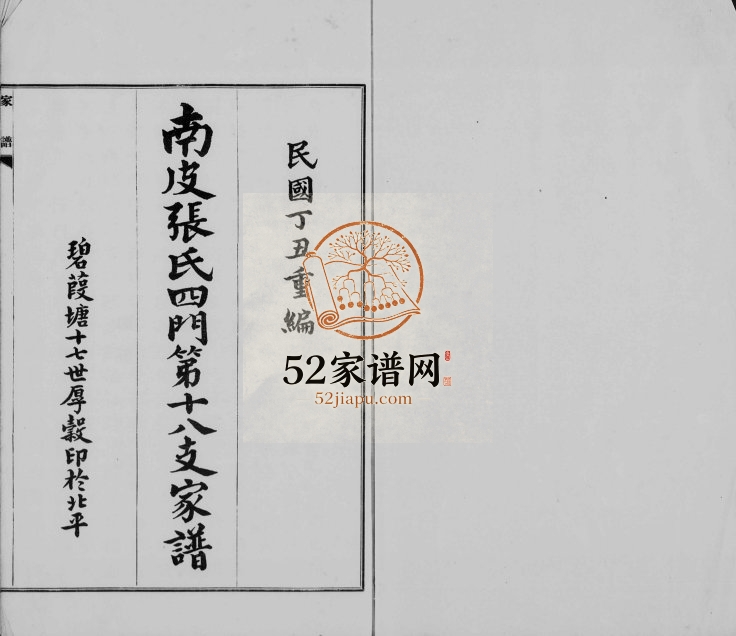 民國丁丑重編
南皮張氏四門第十八支家譜
碧葭塘十七世厚穀印於北平
家譜
52家谱网
52jiapu.com